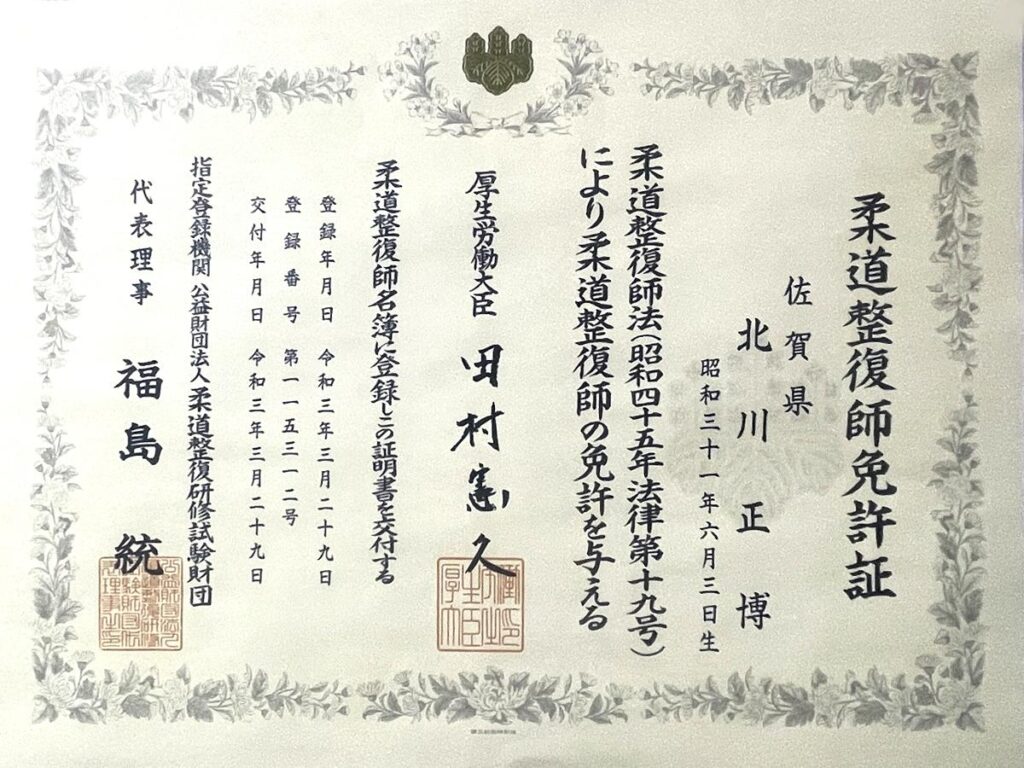 柔道整復師免許証
佐賀県
北川正博
昭和三十一年六月三日生
柔道整復師法(昭和四十五年法律第十九号)
により柔道整復師の免許を与える
厚生労働大臣 田村憲久
柔道整復師名簿に登録しこの証明書を交付する
登録年月日 令和三年三月二十九日
登録番号 第一一五三一二号
交付年月日 令和三年三月二十九日
指定登録機関 公益財団法人 柔道整復研修試験財団
代表理事 福島統